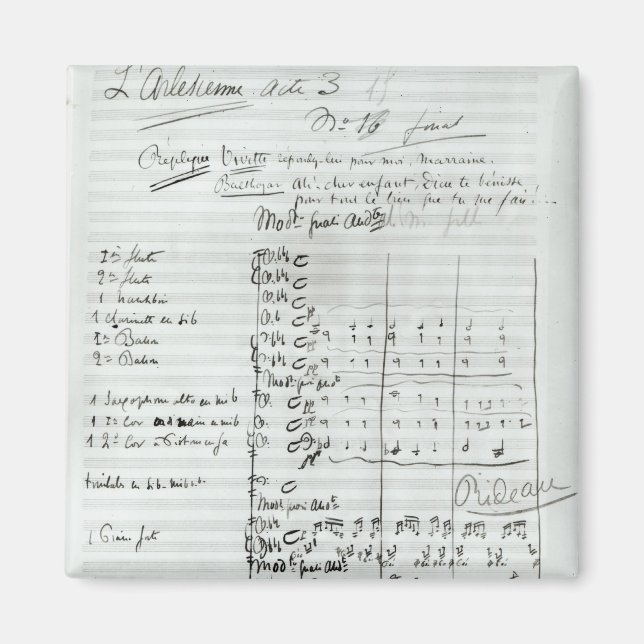 L'Arlesienne acte 3
No 16 final
Réplique Vivette réponds-lui pour moi, marraine.
Balthazar Ah! cher enfant, Dieu te bénisse
pour tout le bien que tu me fais!...
Modto quasi Andte
1re flute
2e flute
1 hautbois
1 clarinette en sib
1er Basson
2e Basson
Modto quasi Andte
1 Saxophone alto en mib
1 1er Cor main en mib
1 2e Cor à Pistons en fa
timbales en sib-mib
Rideau
Modto quasi Andte
1 Piano forte
Modto quasi Andte